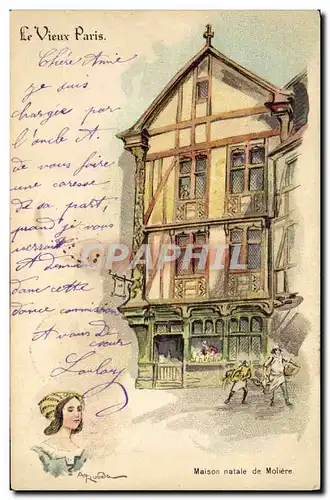 Le Vieux Paris.
Chère Amie
je suis
chargée par
l'oncle A
de vous faire
une caresse
de sa part,
quand je vous
verrait.
A donne
dans cette
douce commission
A vous de
cœur
CPARAMA
A. Robida
Maison natale de Molière